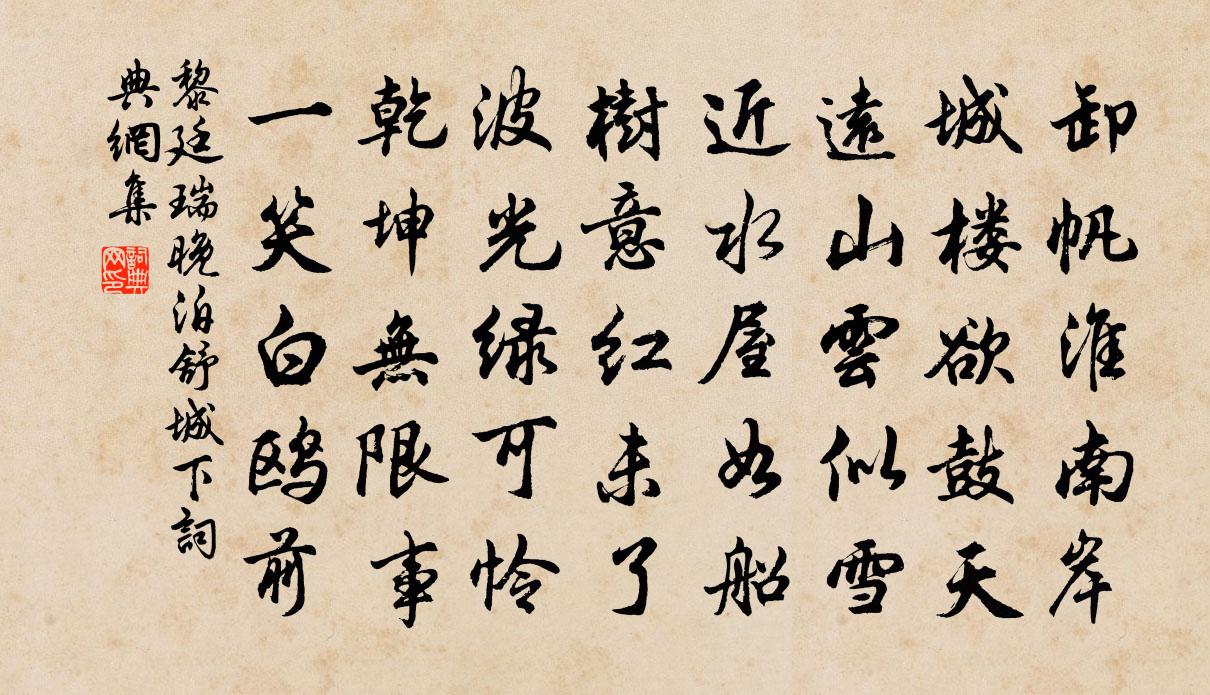 卸帆淮南岸
城楼欲鼓天
遠山雲似雪
近水屋如船
樹意红未了
波光绿可怜
乾坤無限事
一笑白鸥前
黎廷瑞晚泊舒城下詞
典網集
詞典
网印